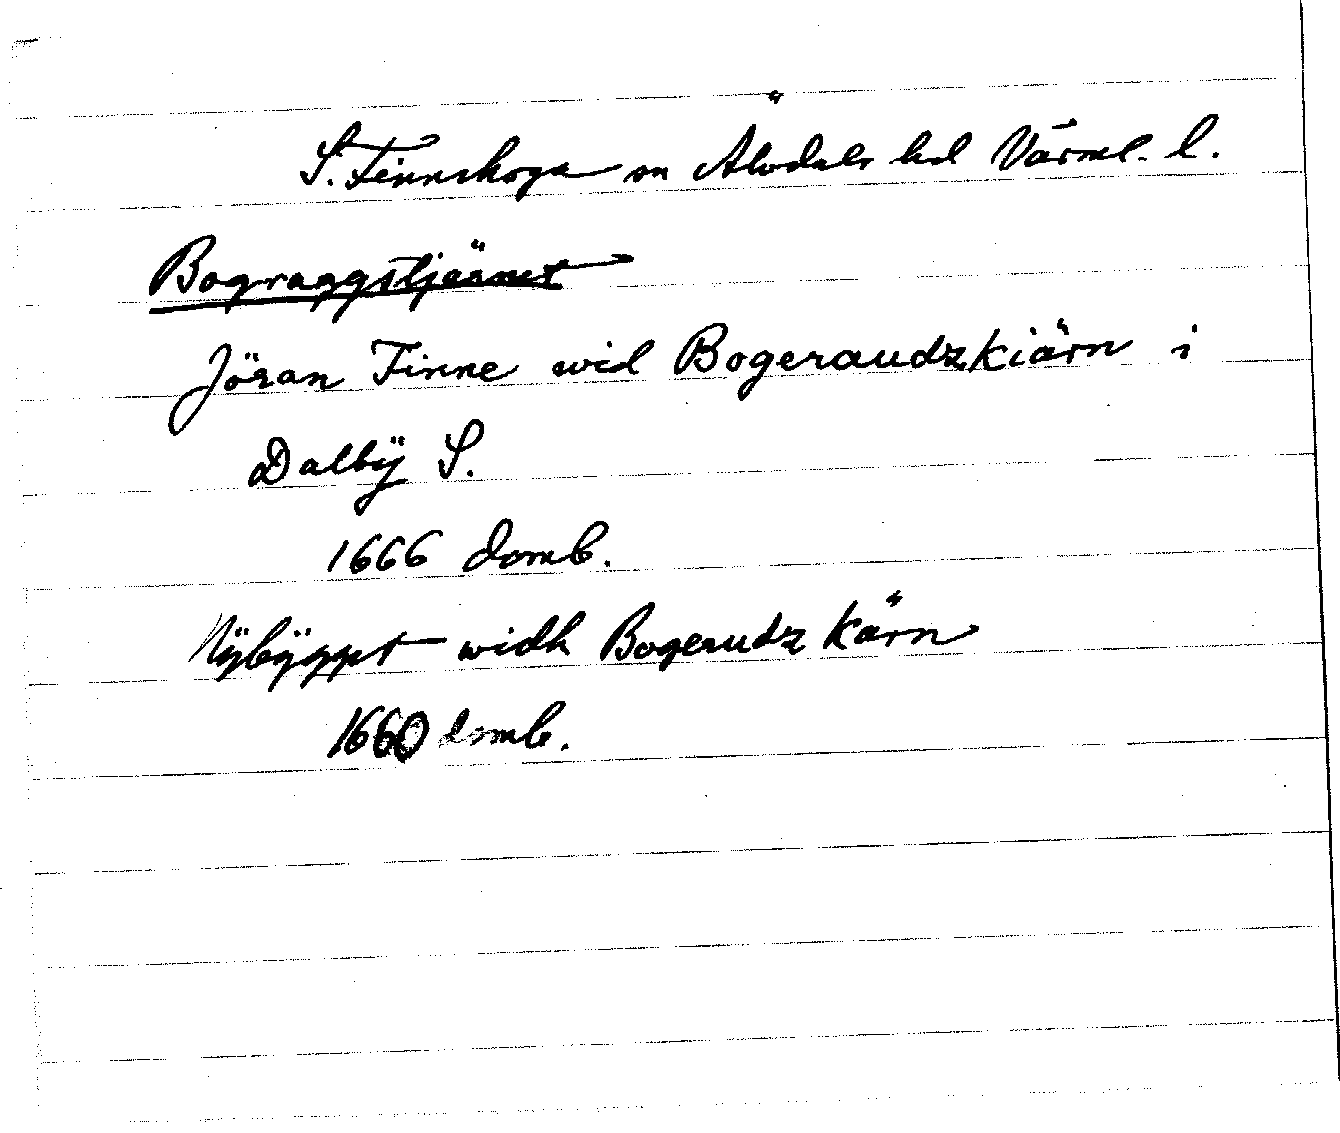 S. Finnskoga sn Älvdals hd Värml. l.
Bograggstjärnet
Jöran Finne wid Bogeraudzkiärn i
Dalbÿ S.
1666 domb.
Nÿbÿggpt widh Bogeraudz kärn
1660 domb.